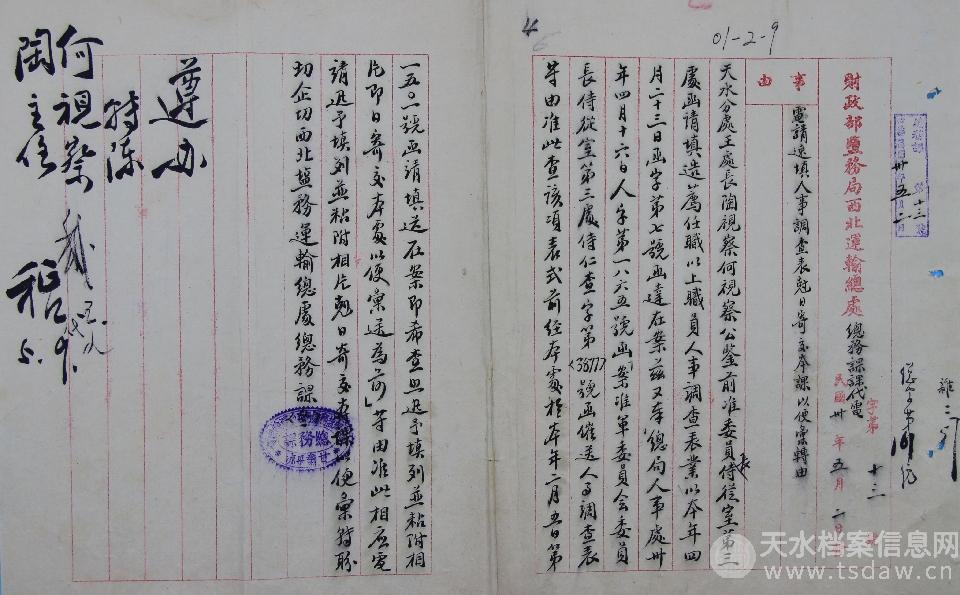 01-2-9
財政部鹽務局西北運輸總處 總務課課代電
字第 十三
民國卅年五月二日
事由
電請速填人事調查表尅日寄交本課以便彙轉由
天水分處王處長陶視察何視察公鑒前准委員長侍從室第三
處函請填造薦任職以上職員人事調查表業以本年四
月二十三日函字第七號函達在案茲又奉總局人事處卅
年四月十六日人字第一八六五號函案准軍委員會委員
長侍從室第三處侍仁查字第〈36777〉號函催送人事調查表
等由准此查該項表式前經本處於本年二月五日第
一五〇一號函請填送在案即希查照迅予填列並粘附相
片即日寄交本處以便彙送為荷」等由准此相應電
請迅予填列並粘附相片尅日寄交本課以便彙轉盼
切企切西北鹽務運輸總處總務課
總務課
遵办
特陳
何視察
陶主任
天水档案信息网
www.tsdaw.cn